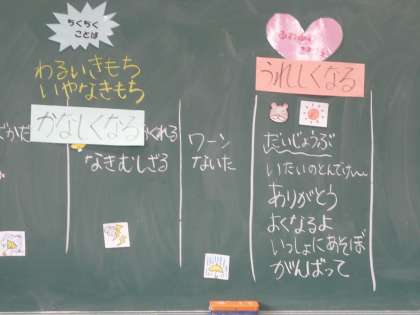 ちくちく
ことば
わるいきもち
いやなきもち
かなしくなる
くれる
なきむしざる
ワーン
ないた
うれしくなる
だいじょうぶ
いたいのとんでけ〜
ありがとう
よくなるよ
いっしょにあそぼ
がんばって